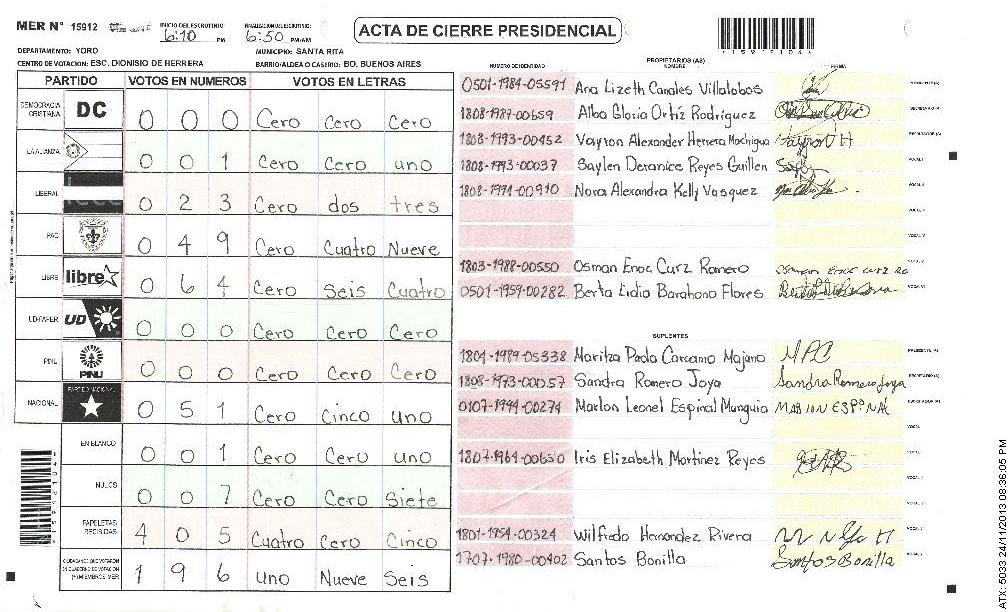 MER N° 15912
INICIO DEL ESCRUTINIO 6:10 PM
FINALIZACION ESCRUTINIO: 6:50 PM/AM
ACTA DE CIERRE PRESIDENCIAL
DEPARTAMENTO: YORO
MUNICIPIO: SANTA RITA
CENTRO DE VOTACION: ESC. DIONISIO DE HERRERA
BARRIO/ALDEA O CASERIO: BO. BUENOS AIRES
PARTIDO VOTOS EN NUMEROS VOTOS EN LETRAS
DEMOCRACIA CRISTIANA DC 0 0 0 Cero Cero Cero
LA ALIANZA 0 0 1 Cero Cero uno
LIBERAL 0 2 3 Cero dos tres
PAC 0 4 9 Cero Cuatro Nueve
LIBRE libre 0 6 4 Cero Seis Cuatro
UD-FAPER UD 0 0 0 Cero Cero Cero
PINU 0 0 0 Cero Cero Cero
NACIONAL PARTIDO NACIONAL 0 5 1 Cero Cinco uno
EN BLANCO 0 0 1 Cero Cero uno
NULOS 0 0 7 Cero Cero Siete
PAPELETAS RECIBIDAS 4 0 5 Cuatro Cero Cinco
CIUDADANOS QUE VOTARON 1 9 6 Uno Nueve Seis
PROPIETARIOS (AS)
NUMERO DE IDENTIDAD NOMBRE FIRMA
0501-1984-05591 Ana Lizeth Canales Villalobos
1808-1987-00659 Alba Gloria Ortiz Rodriguez
1808-1993-00452 Vayron Alexander Herrera Madrigua
1808-1993-00037 Saylen Deranice Reyes Guillen
1808-1971-00910 Nora Alexandra Kelly Vasquez
1803-1988-00550 Osman Enoc Curz Romero
0501-1959-00282 Berta Lidia Barahona Flores
SUPLENTES
1804-1989-05338 Maritza Paola Carcamo Majano MPC
1808-1973-00057 Sandra Romero Joya Sandra Romero Joya
0107-1994-00274 Marlon Leonel Espinal Munguia
1807-1964-00650 Iris Elizabeth Martinez Reyes
1801-1954-00324 Wilfredo Hernandez Rivera
1707-1980-00402 Santos Bonilla Santos Bonilla
ATX: 5033 24/11/2013 08:36:05 PM